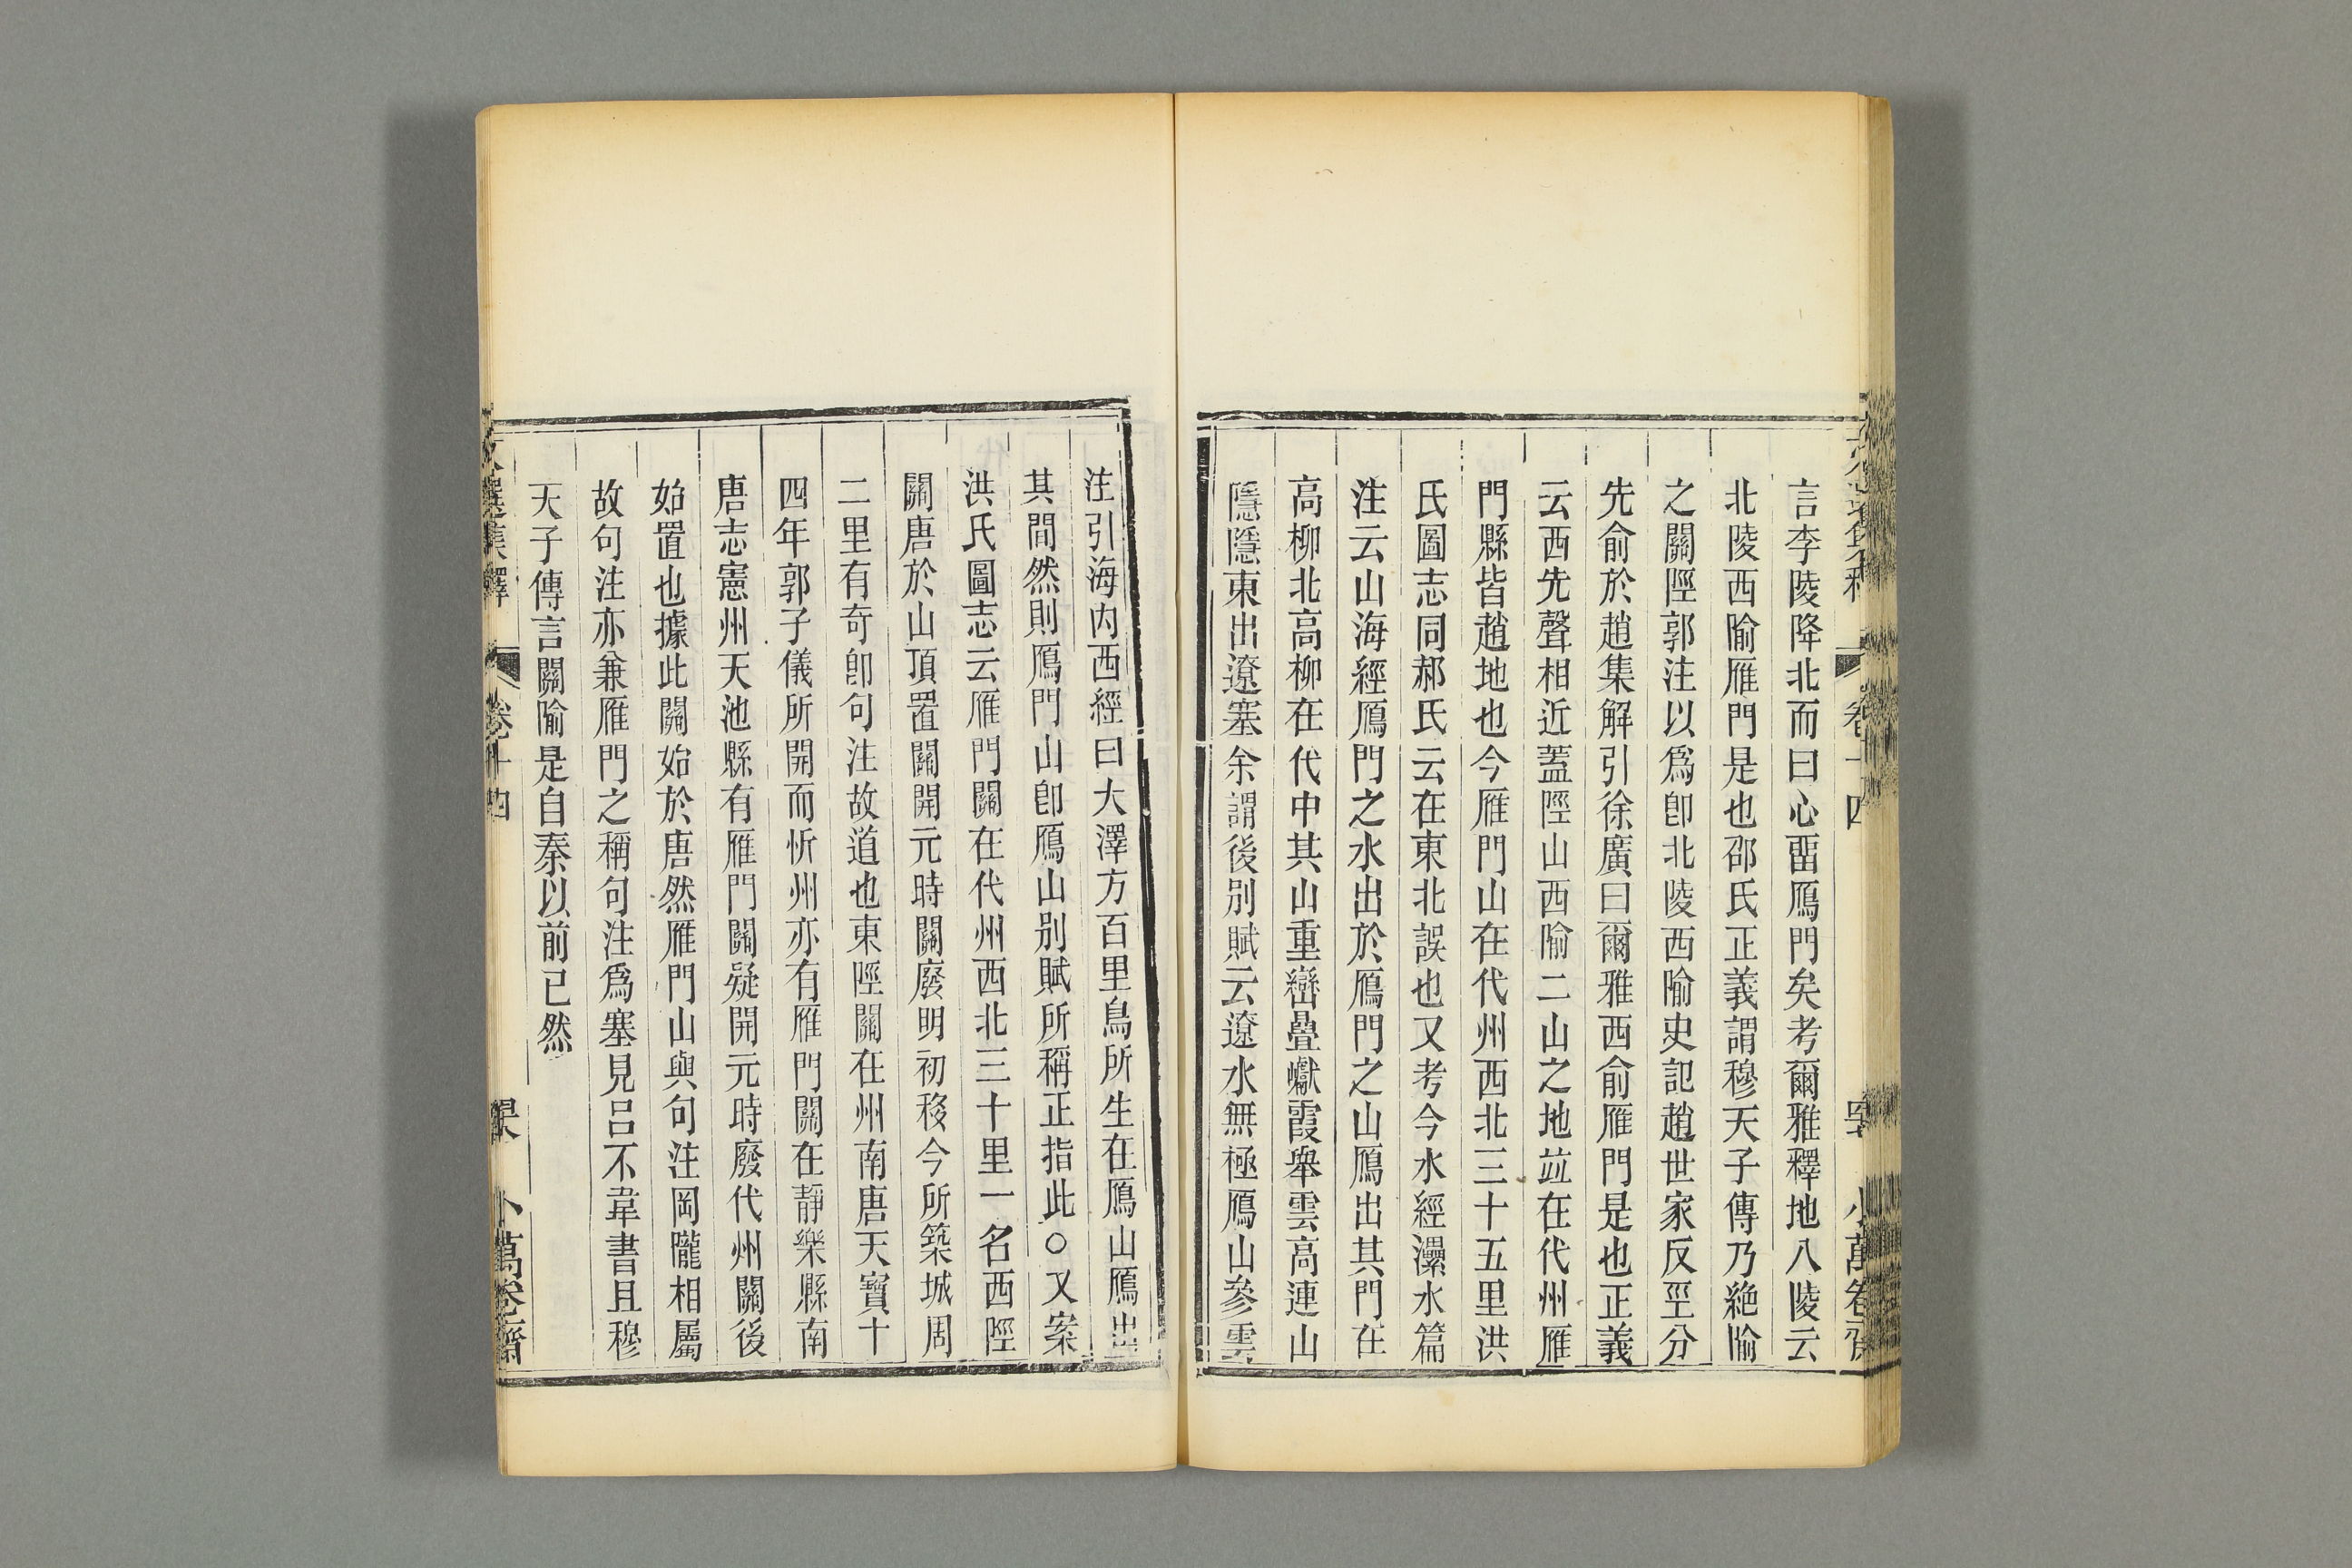 言李陵降北而曰心畱鴈門矣考爾雅釋地八陵云
北陵西隃雁門是也邵氏正義謂穆天子傳乃絶隃
之關隥郭注以爲卽北陵西隃史記趙世家反巠分
先俞於趙集解引徐廣曰爾雅西俞雁門是也正義
云西先聲相近蓋陘山西隃二山之地竝在代州雁
門縣皆趙地也今雁門山在代州西北三十五里洪
氏圖志同郝氏云在東北誤也又考今水經灅水篇
注云山海經鴈門之水出於鴈門之山鴈出其門在
高柳北高柳在代中其山重巒疊巘霞舉雲高連山
隱隱東出遼塞余謂後别賦云遼水無極鴈山參雲
注引海内西經曰大澤方百里鳥所生在鴈山鴈出
其間然則鴈門山卽鴈山别賦所稱正指此○又案
洪氏圖志云雁門關在代州西北三十里一名西陘
關唐於山頂置關開元時關廢明初移今所築城周
二里有奇卽句注故道也東陘關在州南唐天寶十
四年郭子儀所開而忻州亦有雁門關在靜樂縣南
唐志憲州天池縣有雁門關疑開元時廢代州關後
始置也據此關始於唐然雁門山與句注岡隴相屬
故句注亦兼雁門之稱句注爲塞見呂不韋書且穆
天子傳言關隃是自秦以前已然
文選集釋 卷十四 小萬卷齋